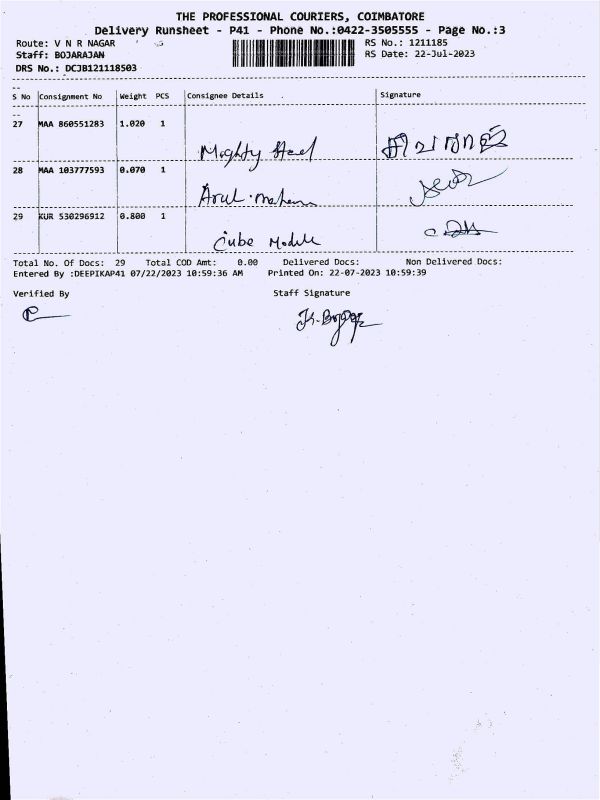 THE PROFESSIONAL COURIERS, COIMBATORE
Delivery Runsheet - P41 - Phone No.:0422-3505555 - Page No.:3
Route: V N R NAGAR RS No.: 1211185
Staff: BOJARAJAN RS Date: 22-Jul-2023
DRS No.: DCJB121118503
S No Consignment No Weight PCS Consignee Details Signature
27 MAA 860551283 1.020 1
Mighty Steel
28 MAA 103777593 0.070 1
Arul
29 KUR 530296912 0.800 1
Cube Module
Total No. Of Docs: 29 Total COD Amt: 0.00 Delivered Docs: Non Delivered Docs:
Entered By :DEEPIKAP41 07/22/2023 10:59:36 AM Printed On: 22-07-2023 10:59:39
Verified By Staff Signature